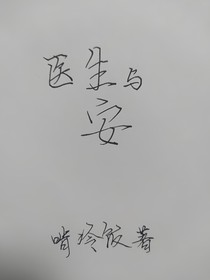 医生与
安
啃冷饭著